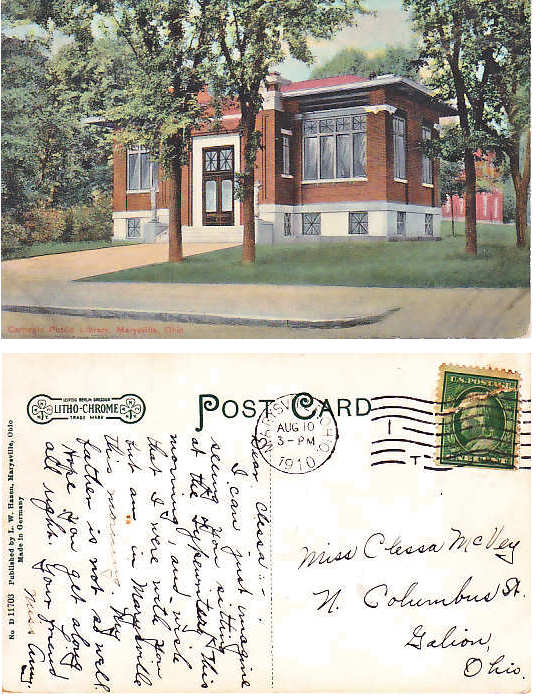 Carnegie Public Library, Marysville, Ohio
LEIPZIG BERLIN DRESDEN
LITHO-CHROME
TRADE MARK
POST CARD
MARYSVILLE, OHIO
AUG 10
3-PM
1910
1
U.S. POSTAGE
No D 11703 Published by L. W. Hazen, Marysville, Ohio
Made in Germany
Dear Clessa:-
I can just imagine
seeing you sitting
at the typewriter this
morning, and wish
that I were with you
but am in Marysville
this morning. My
father is not so well.
Hope you get along
all right. Your friend
Miss
Miss Clessa McVey
N. Columbus St.
Galion,
Ohio.